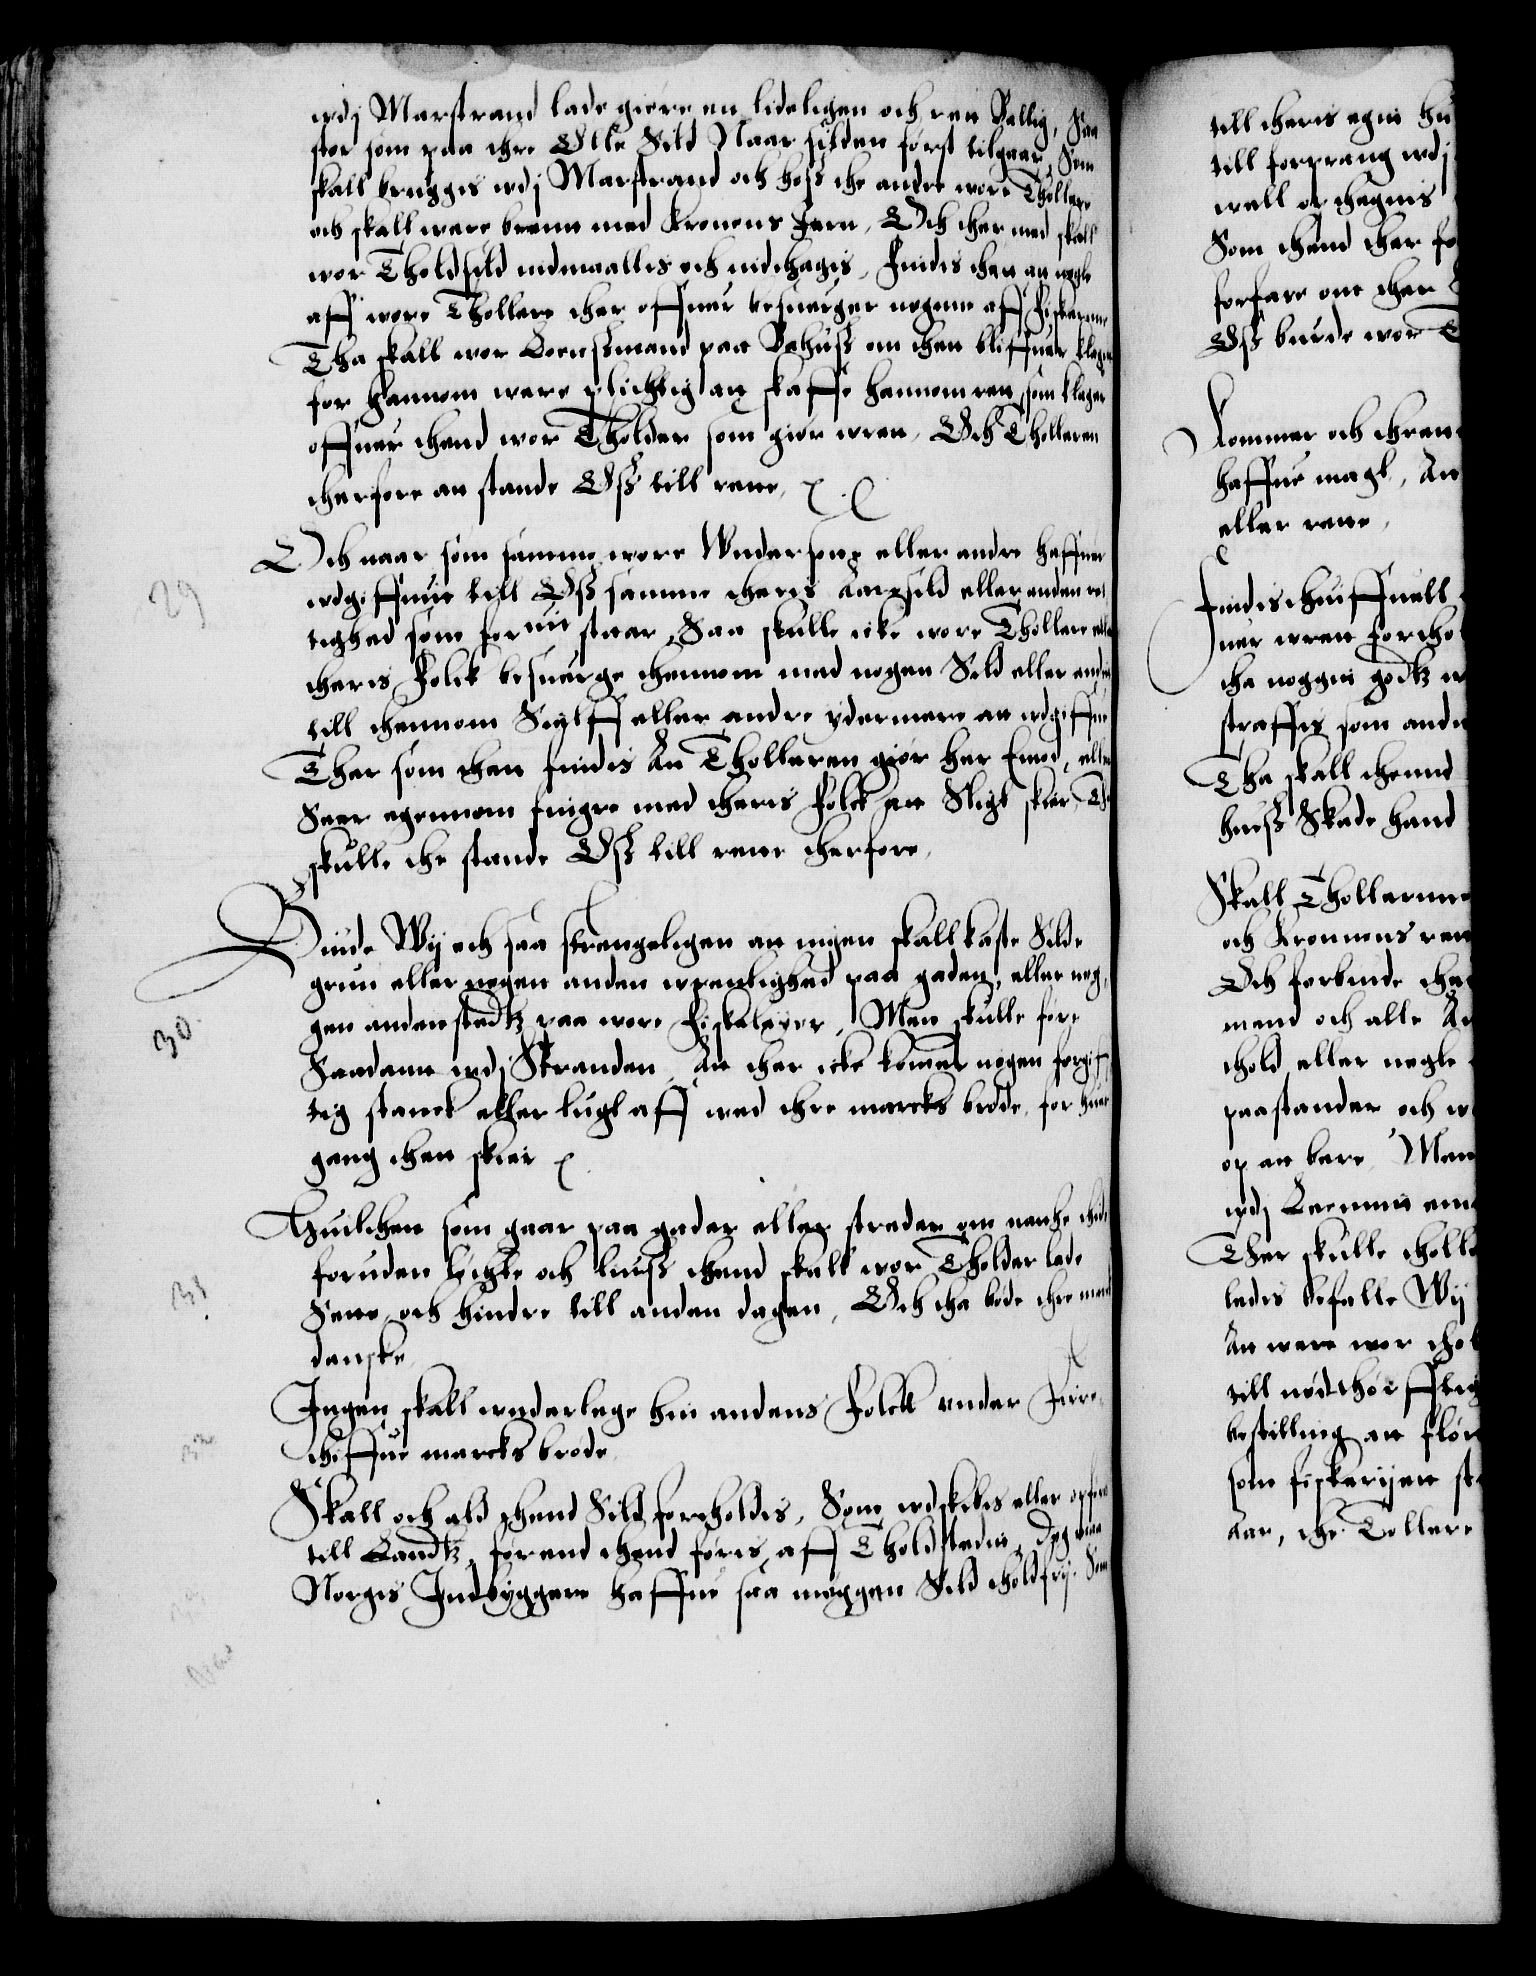 wdj Marstrand lade giøre en lideligen och ren Ballig, Saa
stor som paa thre Otte Sild Naar silden først tilgaar, Som
skall bruggis wdj Marstrand och hoss the andre wore Thollere
och skall were brent med Kronens Jern, Och ther med skall
wor Tholdsild indmaallis och indthagis, Findis thet att nogle
aff wore Thollere ther offuer besuerger nogenn aff Fiskerne
Tha skall wor Leenssmand paa Bahuss om thet bliffuer klaget
for hannom were plichtig att skaffe hannom ret, som klager
offuer thend wor Tholder som giør wret, Och Tholleren
therfore att stande Oss till rette,
Och naar som samme wore Wndersotte eller andre haffuer
wdgiffuit till Oss samme theris Aarssild eller anden ret
tighed som foruit staar, Saa skulle icke wore Thollere eller
theris Folck besuerge thennom med nogen Sild eller andet
till thennom Sielff eller andre ydermere att wdgiffue
Ther som thet findis At Tholleren giør her Emod, eller
Seer egennom fingre med theris Folck att Sligt skier, Tha
skulle the stande Oss till rette therfore,
29
Biude Wij och saa strengeligen att ingen skall kaste Silde
grun eller nogen anden wrenlighed paa gaden, eller nog
gen anden stedtz paa wore Fiskeleyer, Men skulle føre
Saadant wdj Stranden, At ther icke kommer nogen forgif
tig stanck eller lugt aff wed thre marcks brøde, for huer
gang thet skeer
30.
Huilcken som gaar paa gader eller streder om natte thide
foruden lychte och liuss thend skall wor Tholder lade
Sette och hindre till anden dagen, Och tha bøde thre marck
danske
31
Ingen skall wnderlege hin andens Folck vnder Firre
thiffue marcks brøde,
32
Skall och ald thend Sild fortholdis, Som wdskibis eller opføris
till Landtz, førend thend føris aff Tholdsteden, Dog maa
Norgis Indbyggere haffue saa møggen Sild tholdfrij Som
till theris egni hu
till forprang wdj
well opthegnis
Som thend ther fo
forfare om ther
Oss burde wor T
Kommer och thren
haffue magt, At
eller rette,
Findis theiffuell
uer wret fortho
tha noggit godtz w
straffis som ande
Tha skall thennd
huess Skade hand
Skall Tholleren
och Kronnens ren
Och forbiude the
mend och alle An
thold eller nogle
paastander och w
op att bere, Men
wdj Leennit em
Ther skulle tholl
ledis befalle Wij
At were wor thol
till nødthørfftig
bestilling att flør
som fiskerijen st
Aar, the Tollere